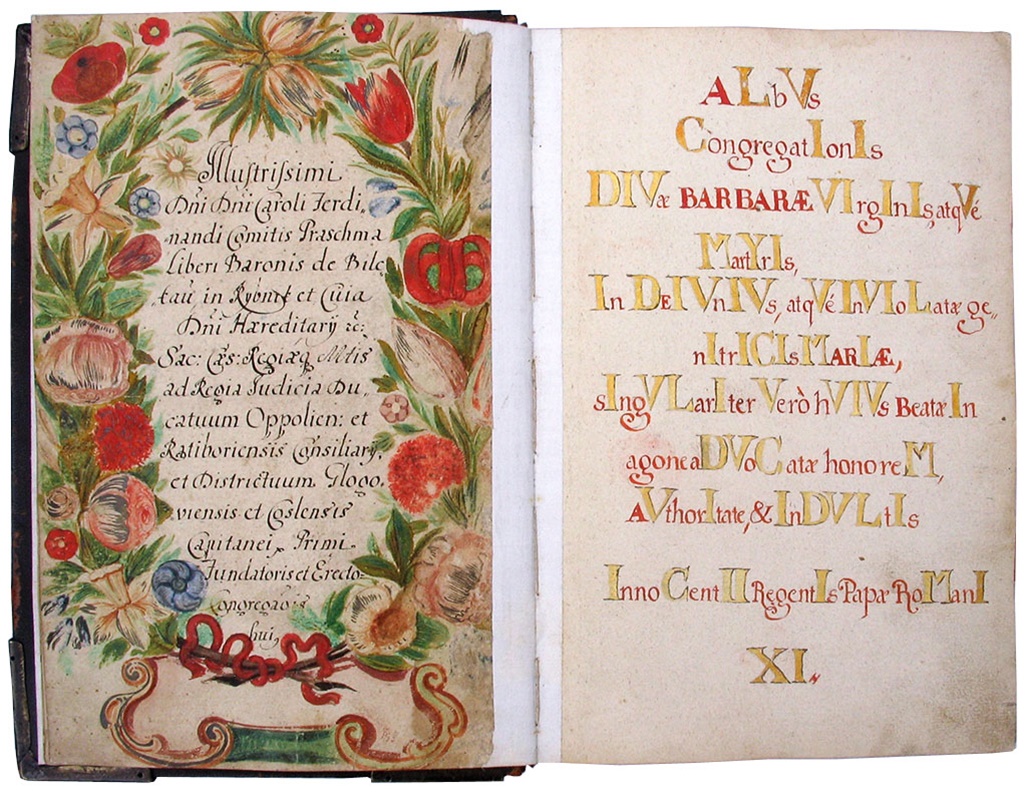 Illustrissimi
Dñi Dñi Caroli Ferdi,
nandi Comitis Praschma
Liberi Baronis de Bile
tau in Rybnik et Cuia
Dñi Hæreditarÿ &c:
Sac: Cæs: Regiæq Mtis
ad Regia Iudicia Du,
catuum Oppolien: et
Ratiboriensis Consiliarÿ,
et Districtuum Glogo,
viensis et Coslensis
Capitanei, Primi
Fundatoris et Erecto
Congregaõis
hui,
ALbVs
CongregatIonIs
DIVæ BARBARÆ VIrgInIs, atqVé
MartYrIs,
In DEIVnIVs, atqVé InVIoLatæ ge,,
nItrICIs MARIÆ,
sIngVLarIter Verò hVIVs Beatæ In
agone aDVoCatæ honoreM,
AVthorItate, & InDVLtIs
InnoCentII RegentIs Papæ RoManI
XI.